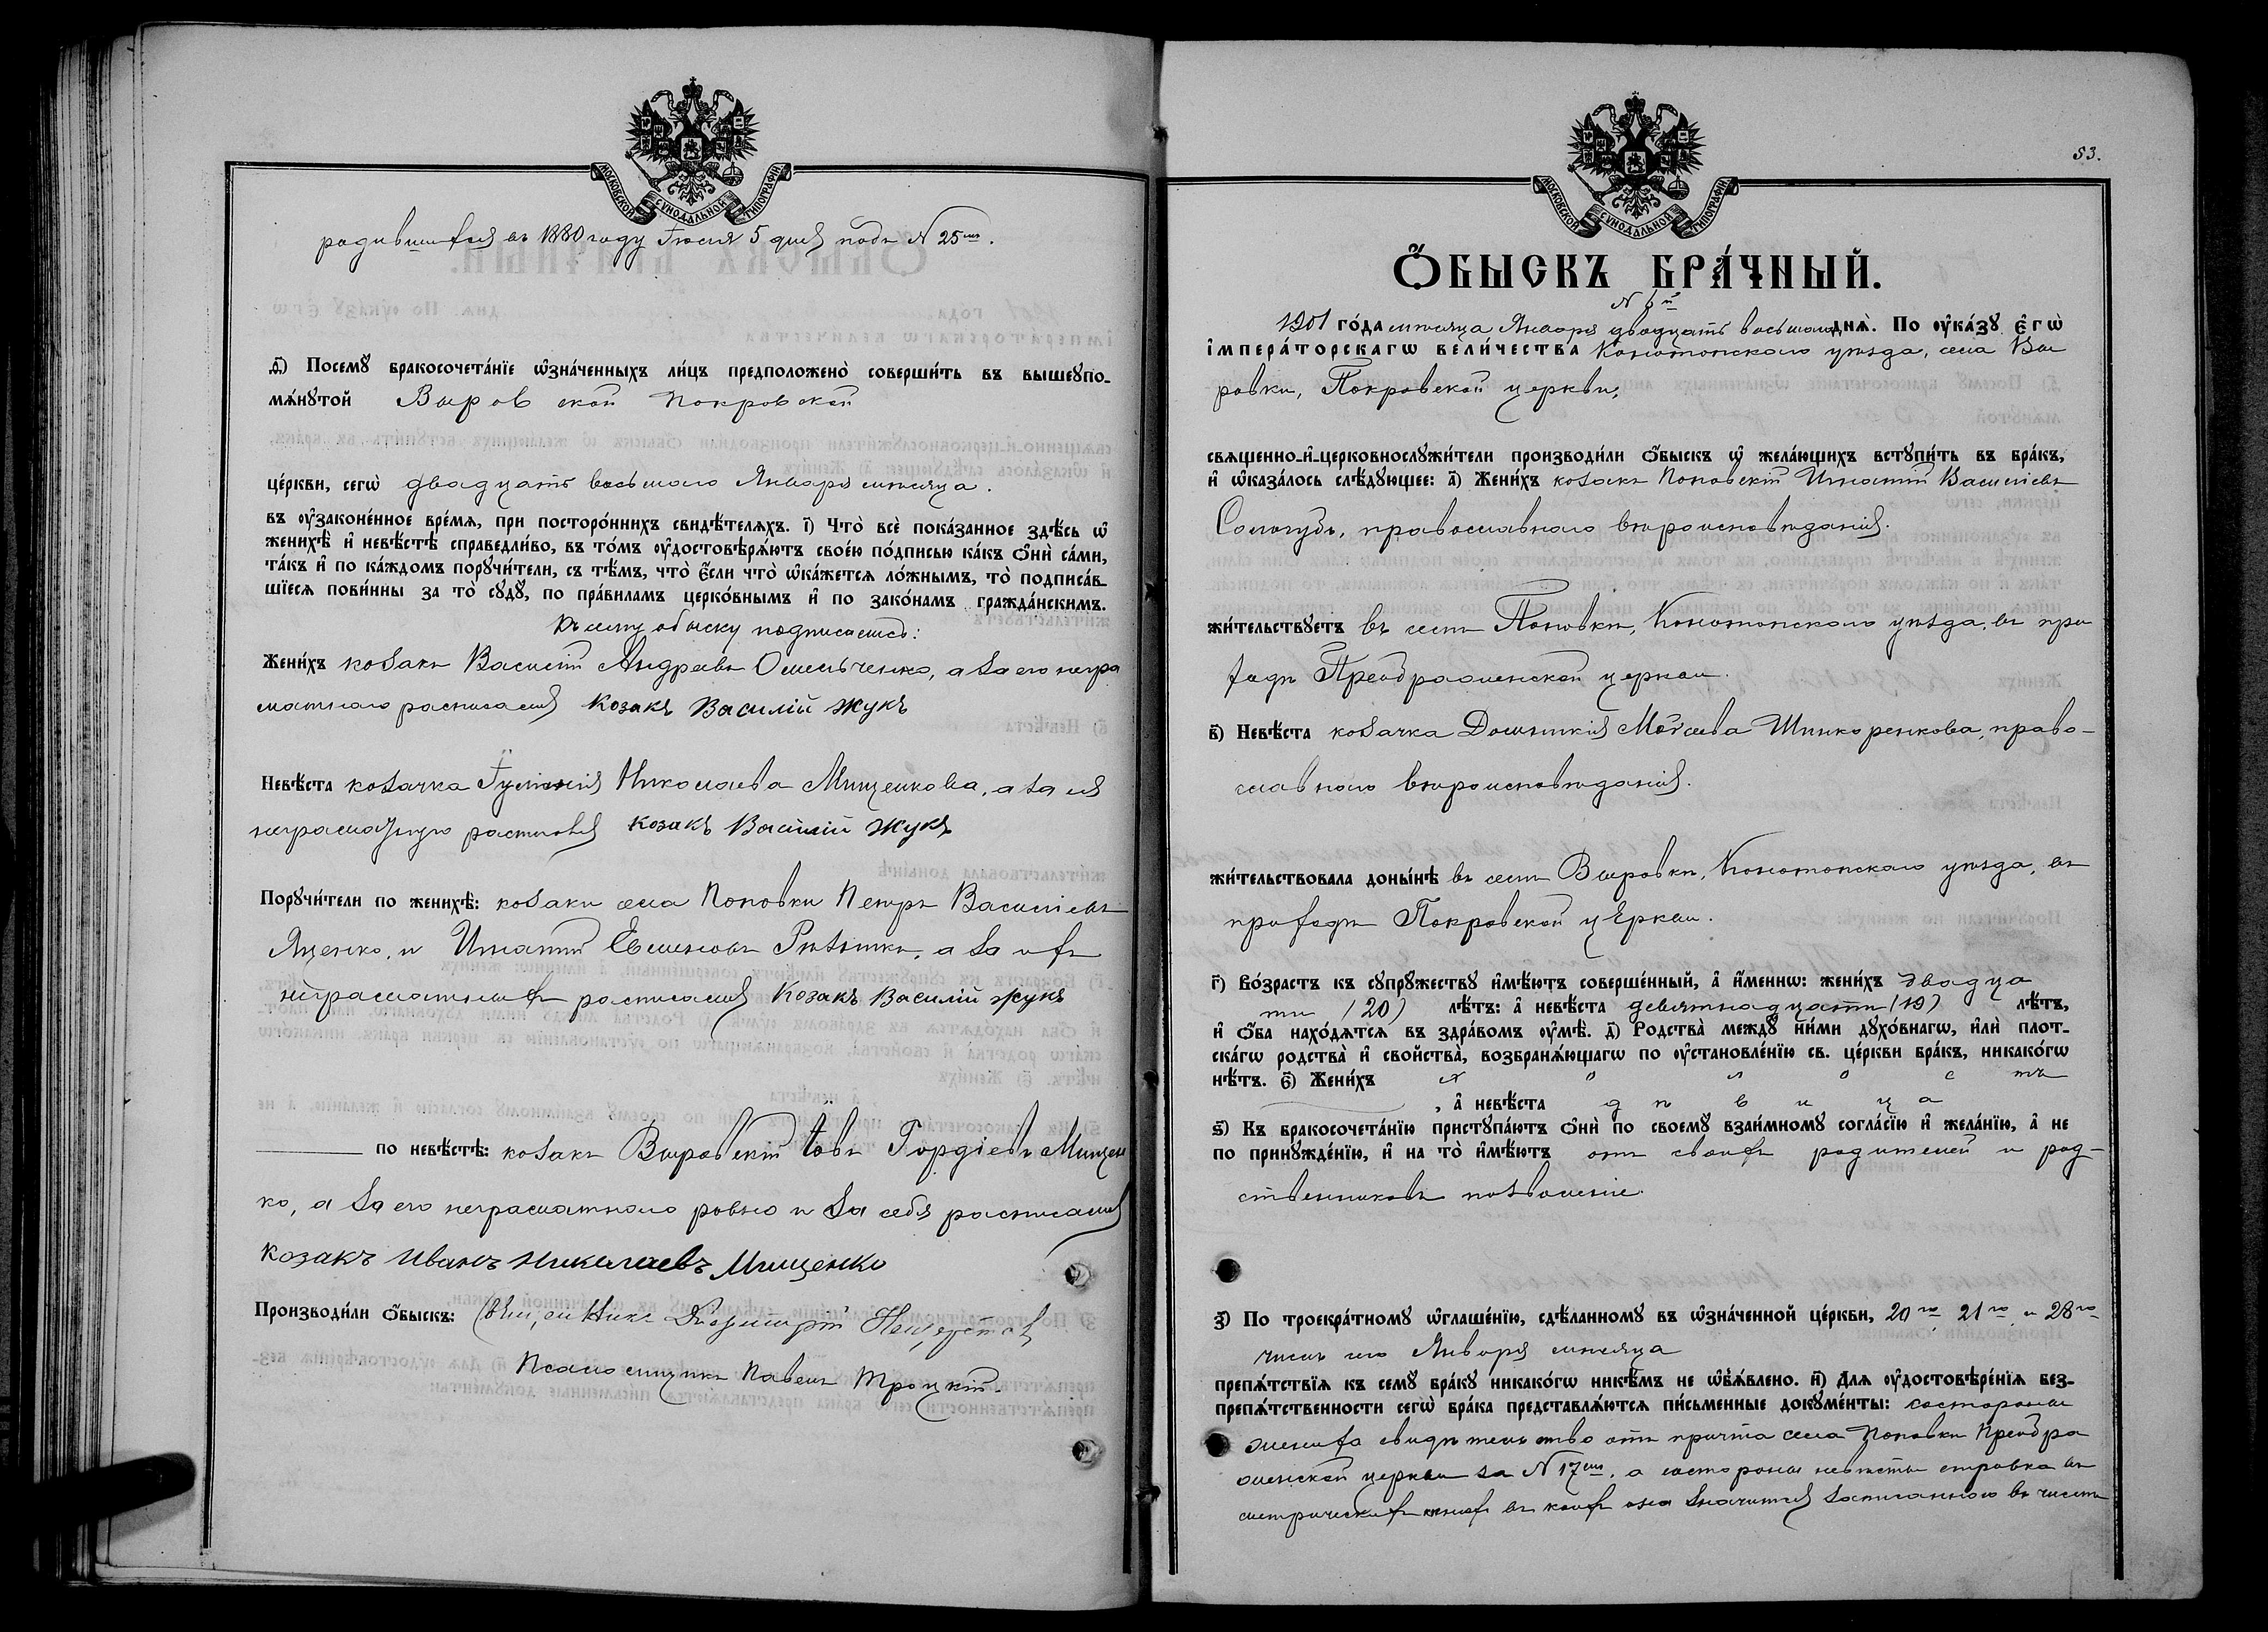 МОСКОВСКОЙ СѴНОДАЛЬНОЙ ТИПОГРАФІИ
родившихся въ 1880 году Іюля 5 дня подъ N 25мъ.
д҃) Посемꙋ бракосочета́нїе ѡ҆зна́ченныхъ ли́цъ предположено̀ соверши́ть въ вышеꙋпо-
мѧ́нꙋтой Выровской Покровской
це́ркви, сегѡ̀ двадцать восьмого Января мѣсяца.
въ ᲂу҆законе́нное вре́мѧ, при посторо́ннихъ свидѣ́телѧхъ. і҃) Что̀ всѐ пока́занное здѣ́сь ѡ҆
женихѣ̀ и҆ невѣ́стѣ справедли́во, въ то́мъ ᲂу҆достовѣрѧ́ютъ свое́ю по́дписью ка́къ ѻ҆нѝ са́ми,
та́къ и҆ по ка́ждомъ порꙋчи́тели, съ тѣ́мъ, что̀ є҆́сли что̀ ѡ҆ка́жетсѧ ло́жнымъ, то̀ подписа́в-
шїесѧ пови́нны за то̀ сꙋдꙋ̀, по пра́виламъ церко́внымъ и҆ по зако́намъ гражда́нскимъ.
Къ сему обыску подписались:
Жени́хъ козакъ Василій Андреевъ Омельченко, а за его негра
матнаго росписался Козакъ Василій Жукъ
Невѣ́ста козачка Іуліанія Николаева Мищенкова, а за нея
неграматную росписался Козакъ Василій Жукъ
Порꙋчи́тели по женихѣ̀: козаки села Поповки Петръ Василіевъ
Яценко, и Игнатій Евменовъ Рѣзникъ, а за ихъ
неграматныхъ росписался Козакъ Василій Жукъ
по невѣ́стѣ: козакъ Выровскій Іовъ Гордіевъ Мищен
ко, а за его неграматнаго ровно и за себя росписался
Козакъ Иванъ Николаевъ Мищенко
Производи́ли ѻ҆́быскъ: Священникъ Димитрій
Псаломщикъ Павелъ Троцкій.
МОСКОВСКОЙ СѴНОДАЛЬНОЙ ТИПОГРАФІИ
53.
Ѻ҆́БЫСКЪ БРА́ЧНЫЙ.
N 6й
1901 го́да мѣсяца Января двадцать восьмого днѧ̀. По ᲂу҆ка́зꙋ є҆гѡ̀
і҆мпера́торскагѡ вели́чества Конотопскаго уѣзда, села Вы
ровки, Покровской церкви,
свѧщенно-и҆-церковнослꙋжи́тели производи́ли ѻ҆́быскъ ѡ҆ жела́ющихъ встꙋпи́ть въ бра́къ,
и҆ ѡ҆каза́лось слѣ́дꙋющее: а҃) Жени́хъ козакъ Поповскій Игнатій Василіевъ
Сологубъ, православнаго вѣроисповѣданія.
жи́тельствꙋетъ въ селѣ Поповкѣ, Конотопскаго уѣзда, въ при
ходѣ Преображенской церкви.
в҃) Невѣ́ста козачка Домникія Моѵсеева Шинкоренкова, право-
славнаго вѣроисповѣданія.
жи́тельствовала доны́нѣ въ селѣ Выровкѣ, Конотопскаго уѣзда, въ
приходѣ Покровской церкви.
г҃) Во́зрастъ къ сꙋпрꙋ́жествꙋ и҆мѣ́ютъ соверше́нный, а҆ и҆́меннѡ: жени́хъ двадца
ти (20) лѣ́тъ: а҆ невѣ́ста девятнадцати (19) лѣ́тъ,
и҆ ѻ҆́ба нахо́дѧтсѧ въ здра́вомъ ᲂу҆мѣ̀. д҃) Родства̀ междꙋ̀ ни́ми дꙋхо́внагѡ, и҆лѝ плот-
ска́гѡ родства̀ и҆ свойства̀, возбранѧ́ющагѡ по ᲂу҆становле́нїю св. це́ркви бра́къ, никако́гѡ
нѣ́тъ. є҃) Жени́хъ холостъ
, а҆ невѣ́ста дѣвица
ѕ҃) Къ бракосочета́нїю пристꙋпа́ютъ ѻ҆нѝ по своемꙋ̀ взаи́мномꙋ согла́сїю и҆ жела́нїю, а҆ не
по принꙋжде́нїю, и҆ на то̀ и҆мѣ́ютъ отъ своихъ родителей и род-
ственниковъ позволеніе.
з҃) По троекра́тномꙋ ѡ҆глаше́нїю, сдѣ́ланномꙋ въ ѡ҆зна́ченной це́ркви, 20го, 21го и 28го
числъ сего Января мѣсяца
препѧ́тствїѧ къ семꙋ̀ бра́кꙋ никако́гѡ никѣ́мъ не ѡ҆б̾ѧ́влено. и҃) Длѧ ᲂу҆достовѣре́нїѧ без-
препѧ́тственности сегѡ̀ бра́ка представлѧ́ютсѧ пи́сьменные докꙋме́нты: состороны
жениха свидѣтельство отъ причта села Поповки Преобра
женской церкви за N 17мъ, а состороны невѣсты справка въ
метрическихъ книгахъ въ коихъ она значится записанною въ числѣ